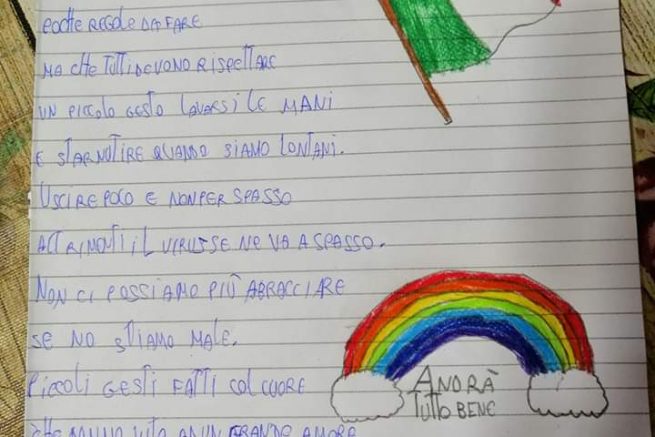 POCHE REGOLE DA FARE
MA CHE TUTTI DEVONO RISPETTARE
UN PICCOLO GESTO LAVARSI LE MANI
E STARNUTIRE QUANDO SIAMO LONTANI.
USCIRE POCO E NON PER SPASSO
ALTRIMENTI IL VIRUS SE NE VA A SPASSO.
NON CI POSSIAMO PIÙ ABRACCIARE
SE NO STIAMO MALE.
PICCOLI GESTI FATTI COL CUORE
CHE DANNO VITA AD UN GRANDE AMORE
ANDRÀ
TUTTO BENE